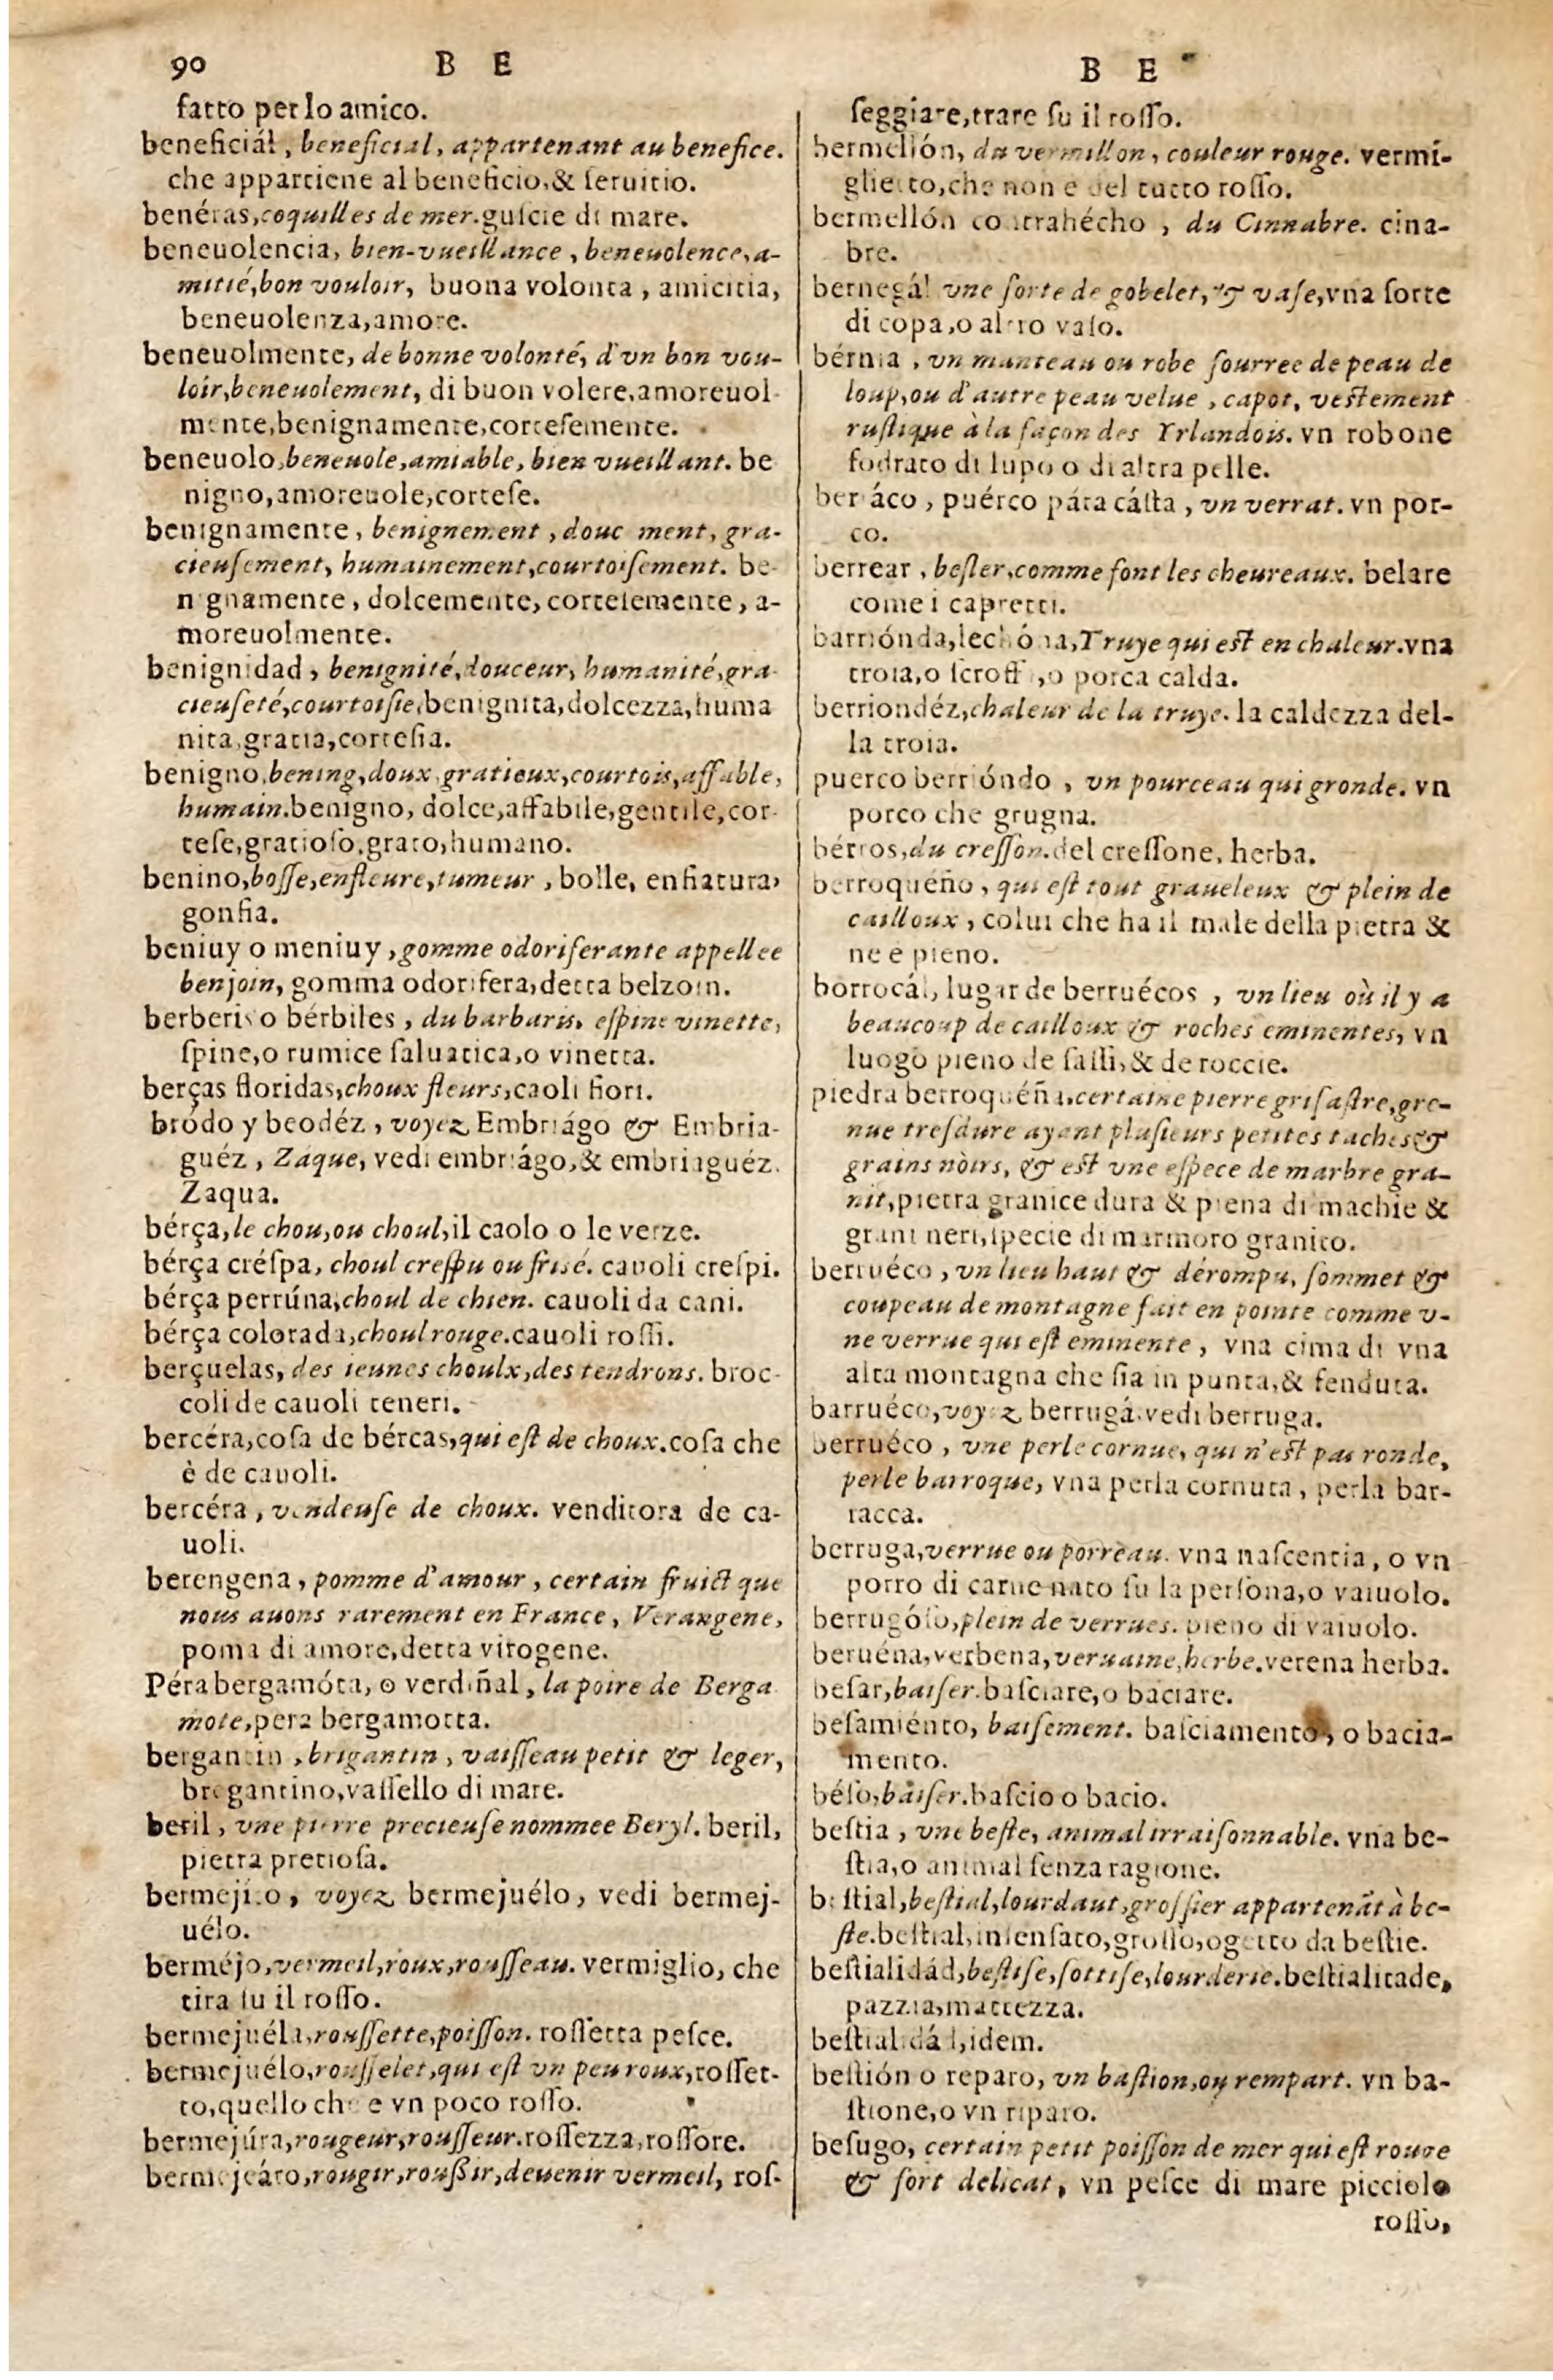 90 B E
fatto per lo amico.
beneficiál, beneficial, appartenant au benefice.
che appartiene al beneficio,& seruitio.
benéras,coquilles de mer.guſcie di mare.
beneuolencia, bien-vueillance, beneuolence,a-
mitié,bon vouloir, buona volonta, amicitia,
beneuolenza,amore.
beneuolmente, de bonne volonté, d'vn bon vou-
loir,beneuolement, di buon volere,amoreuol
mente,benignamente,corteſemente.
beneuolo,beneuole,amiable, bien vueillant. be
nigno,amoreuole,corteſe.
benignamente, benignement, douc ment, gra-
cieuſement, humainement,courtoiſement. be-
n gnamente, dolcemente, corteſemente, a-
moreuolmente.
benignidad, benignité,douceur, humanité,gra-
cieuſeté,courtoiſie,benignita,dolcezza,huma
nita,gratia,corteſia.
benigno,bening,doux,gratieux,courtois,affable,
humain.benigno, dolce,affabile,gentile,cor-
teſe,gratioſo,grato,humano.
benino,boſſe,enfleure,tumeur, bolle, enfiatura,
gonfia.
beniuy o meniuy,gomme odoriferante appellee
benjoin, gomma odorifera,detta belzoin.
berberis o bérbiles, du barbaris, eſpine vinette,
ſpine,o rumice ſaluatica,o vinetta.
berças floridas,choux fleurs,caoli fiori.
bródo y beodéz, voyez Embriágo & Embria-
guéz, Zaque, vedi embriágo,& embriaguéz.
Zaqua.
bérça,le chou,ou choul,il caolo o le verze.
bérça créſpa, choul creſpu ou friſé. cauoli creſpi.
bérça perrúna,choul de chien. cauoli da cani.
bérça colorada,choul rouge.cauoli roſſi.
berçuelas, des ieunes choulx,des tendrons. broc-
coli de cauoli teneri.
bercéra,coſa de bércas,qui eſt de choux.coſa che
è de cauoli.
bercéra, vendeuſe de choux. venditora de ca-
uoli.
berengena, pomme d'amour, certain fruict que
nous auons rarement en France, Verangene,
poma di amore,detta vitogene.
Péra bergamóta, o verdiñal, la poire de Berga
mote,pera bergamotta.
bergantin,brigantin, vaiſſeau petit & leger,
bregantino,vaſſello di mare.
beril, vne pierre precieuſe nommee Beryl. beril,
pietra pretioſa.
bermeji o, voyez bermejuélo, vedi bermej-
uélo.
berméjo,vermeil,roux,rouſſeau. vermiglio, che
tira ſu il roſſo.
bermejuéla,rouſſette,poiſſon. roſſetta peſce.
bermejuélo,rouſſelet,qui eſt vn peu roux,roſſet-
to,quello che e vn poco roſſo.
bermejúra,rougeur,rouſſeur.roſſezza,roſſore.
bermejeáro,rougir,rouſſir,deuenir vermeil, roſ-
B E
ſeggiare,trare ſu il roſſo.
bermellón, du vermillon, couleur rouge. vermi-
glietto,che non e del tutto roſſo.
bermellón contrahécho, du Cinnabre. cina-
bre.
bernegál vne ſorte de gobelet, & vaſe,vna ſorte
di copa,o altro vaſo.
bérnia, vn manteau ou robe fourree de peau de
loup,ou d'autre peau velue, capot, veſtement
ruſtique à la façon des Yrlandois. vn robone
fodrato di lupo o di altra pelle.
ber áco, puérco pára cáſta, vn verrat. vn por-
co.
berrear, beſler,comme font les cheureaux. belare
come i capretti.
barriónda,lechóna,Truye qui eſt en chaleur.vna
troia,o ſcroff ,o porca calda.
berriondéz,chaleur de la truye. la caldezza del-
la troia.
puerco berrióndo, vn pourceau qui gronde. vn
porco che grugna.
bérros,du creſſon.del creſſone, herba.
berroqueño, qui eſt tout graueleux & plein de
cailloux, colui che ha il male della pietra &
ne e pieno.
borrocál, lugar de berruécos, vn lieu où il y a
beaucoup de cailloux & roches eminentes, vn
luogo pieno de ſaſſi,& de roccie.
piedra berroquéña,certaine pierre griſaſtre,gre-
nue treſdure ayant pluſieurs petites taches &
grains noirs, & eſt vne eſpece de marbre gra-
nit,pietra granice dura & piena di machie &
grani neri,ſpecie di marmoro granito.
berruéco, vn lieu haut & derompu, ſommet &
coupeau de montagne fait en pointe comme v-
ne verrue qui eſt eminente, vna cima di vna
alta montagna che ſia in punta,& fenduta.
barruéco,voyez berrugá.vedi berruga.
berruéco, vne perle cornue, qui n'eſt pas ronde,
perle barroque, vna perla cornuta, perla bar-
racca.
berruga,verrue ou porreau. vna naſcentia, o vn
porro di carne nato ſu la perſona,o vaiuolo.
berrugóſo,plein de verrues. pieno di vaiuolo.
beruéna,verbena,veruaine,herbe.verena herba.
beſar,baiſer.baſciare,o baciare.
beſamiénto, baiſement. baſciamento, o bacia-
mento.
béſo,baiſer.baſcio o bacio.
beſtia, vne beſte, animal irraiſonnable. vna be-
ſtia,o animal ſenza ragione.
beſtial,beſtial,lourdaut,groſſier appartenãt à be-
ſte.beſtial,inſenſato,groſſo,ogetto da beſtie.
beſtialidád,beſtiſe,ſottiſe,lourderie.beſtialitade,
pazzia,mattezza.
beſtialidá d,idem.
beſtión o reparo, vn baſtion,ou rempart. vn ba-
ſtione,o vn riparo.
beſugo, certain petit poiſſon de mer qui eſt rouge
& fort delicat, vn peſce di mare picciolo
roſſo,